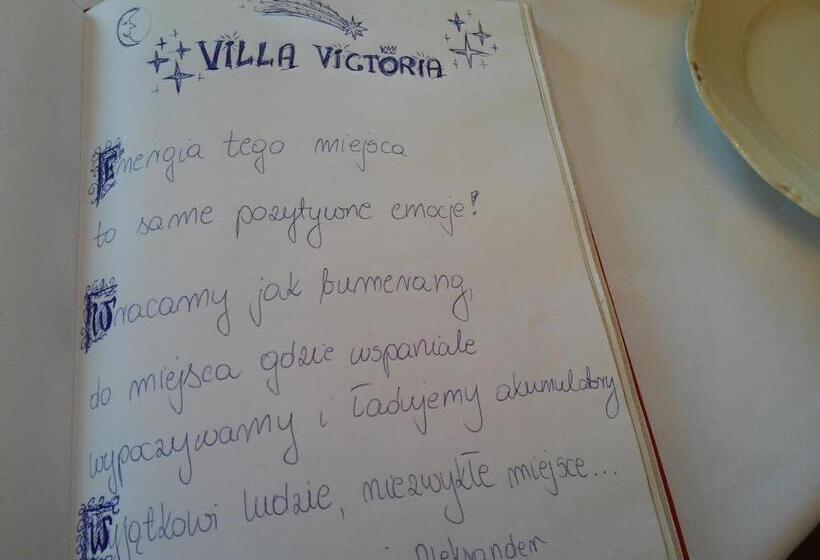 VILLA VICTORIA
Energia tego miejsca
to same pozytywne emocje!
Wracamy jak bumerang,
do miejsca gdzie wspaniale
wypoczywamy i ładujemy akumulatory
Wyjątkowi ludzie, niezwykłe miejsce...
i Aleksander